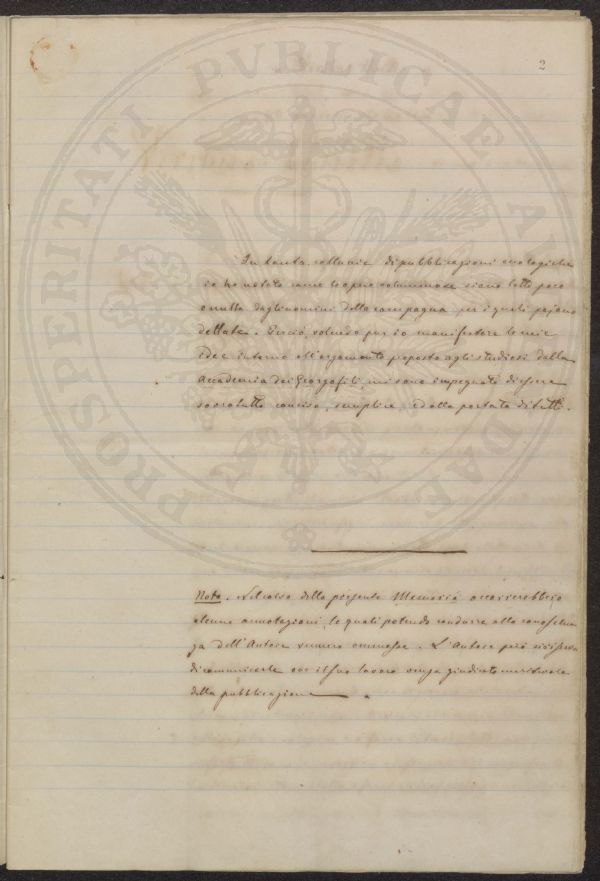 PROSPERITATI PVBLICAE AVGENDAE
2
In tanta colluvie di pubblicazioni enologiche
io ho notato come le opere voluminose siano lette poco
o nulla dagli uomini della campagna per i quali pajono
dettate. Perciò, volendo pur io manifestare le mie
idee intorno all'argomento proposto agli studiosi dalla
Accademia dei Georgofili, mi sono impegnato di essere
sopratutto conciso, semplice, ed alla portata di tutti.
Nota. Nel corso della presente Memoria occorrerebbero
alcune annotazioni, le quali potendo condurre alla conoscen
za dell'Autore vennero ommesse. L'Autore però si riserva
di comunicarle ove il suo lavoro venga giudicato meritevole
della pubblicazione.